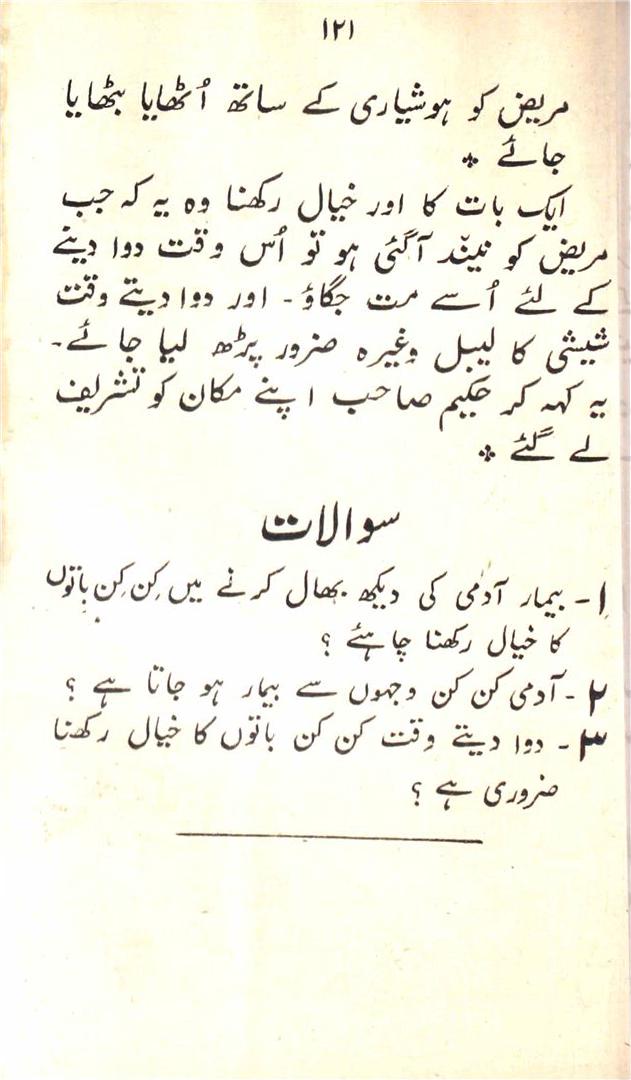 ۱۲۱
مریض کو ہوشیاری کے ساتھ اُٹھایا بٹھایا
جائے ٭
ایک بات کا اور خیال رکھنا وہ یہ کہ جب
مریض کو نیند آگئی ہو تو اُس وقت دوا دینے
کے لئے اُسے مت جگاؤ۔ اور دوا دیتے وقت
شیشی کا لیبل وغیرہ ضرور پڑھ لیا جائے۔
یہ کہہ کر حکیم صاحب اپنے مکان کو تشریف
لے گئے ٭
سوالات
۱۔ بیمار آدمی کی دیکھ بھال کرنے میں کِن کِن باتوں
کا خیال رکھنا چاہئے ؟
۲۔ آدمی کن کن وجہوں سے بیمار ہو جاتا ہے ؟
۳۔ دوا دیتے وقت کن کن باتوں کا خیال رکھنا
ضروری ہے ؟